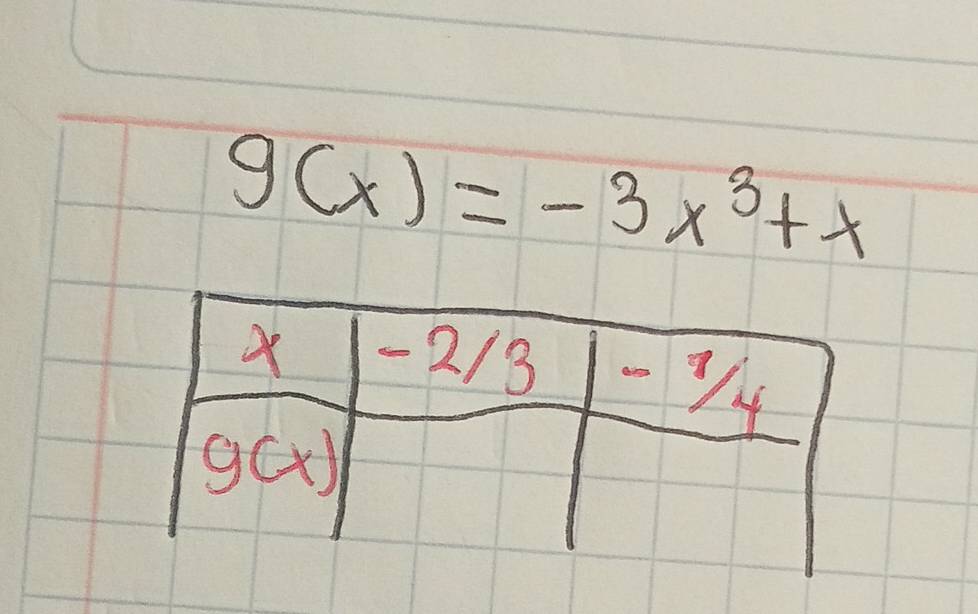 g(x) = -3x³+x
x -2/3 -1/4
g(x)